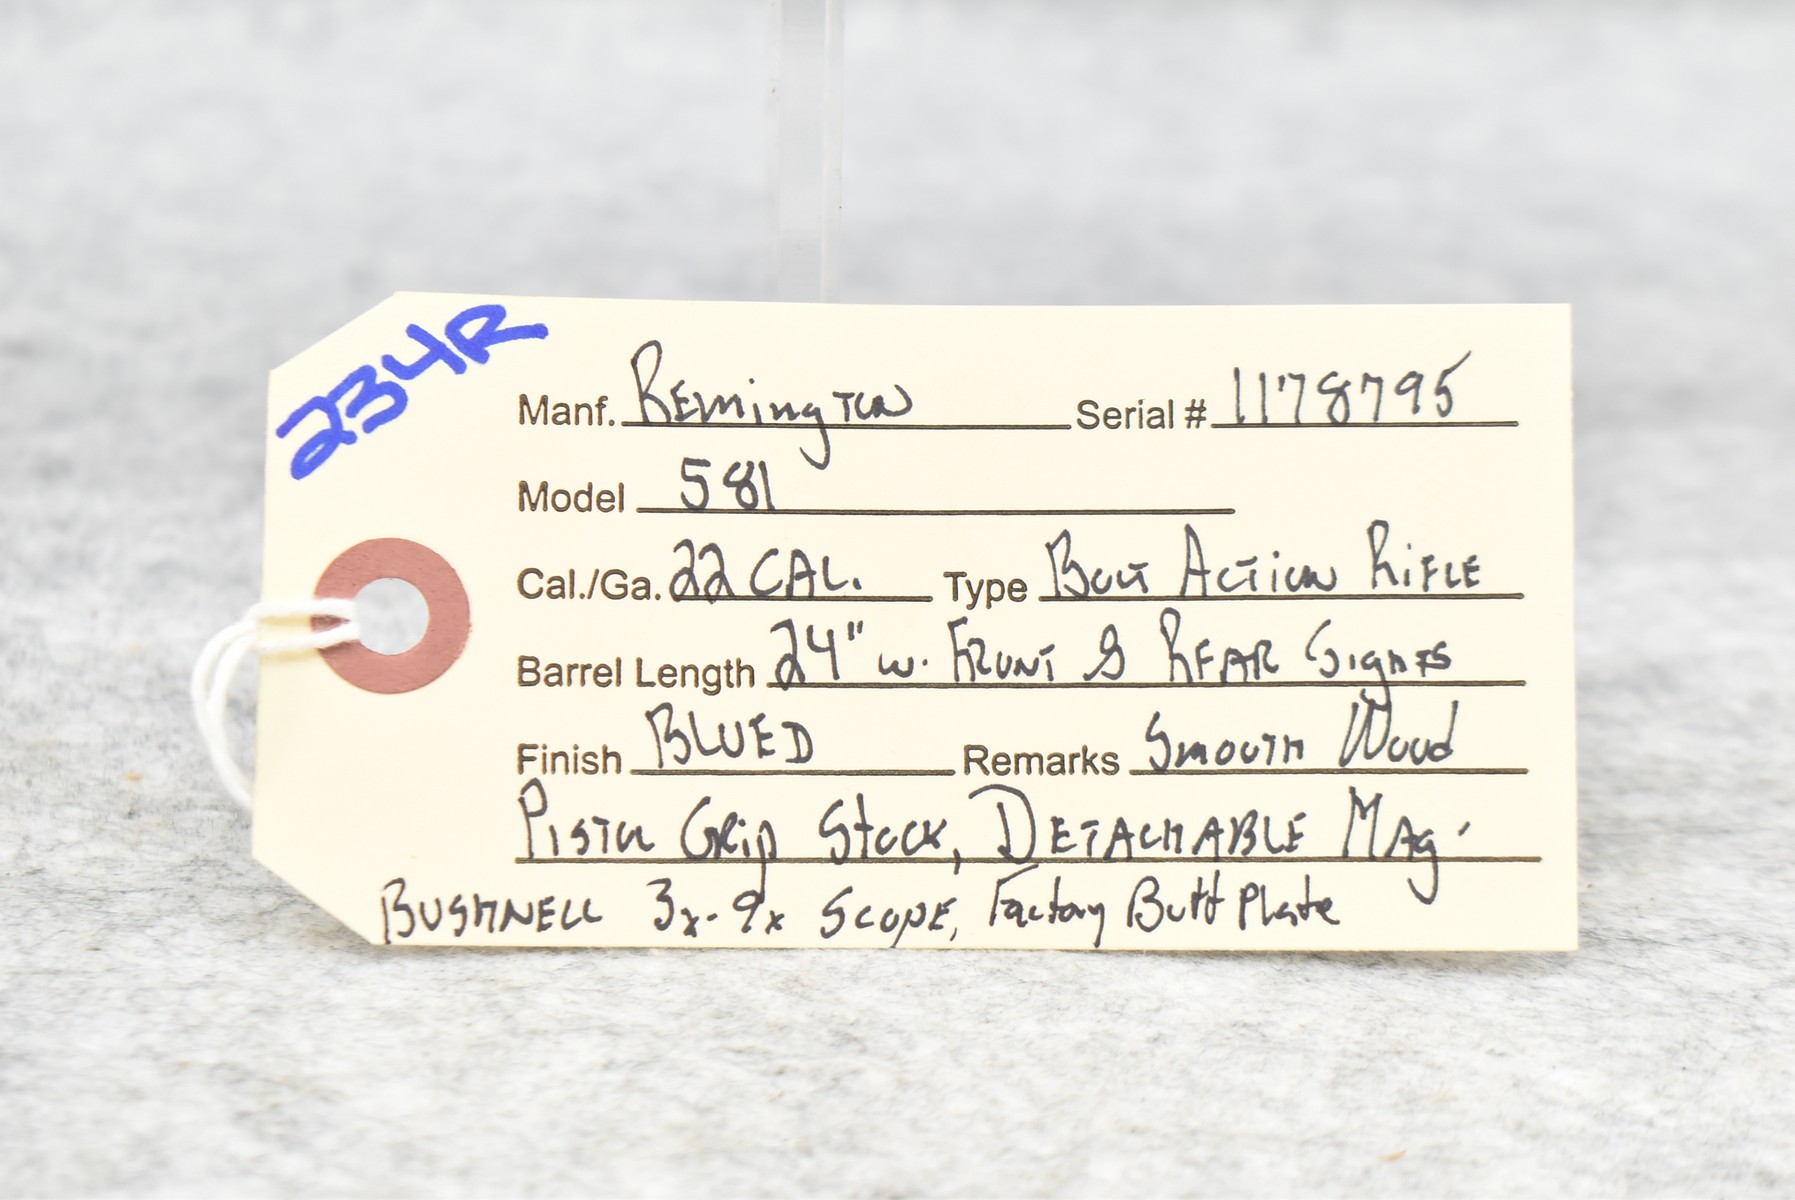 234R
Manf. Remington Serial # 1178795
Model 581
Cal./Ga. 22 CAL. Type Bolt Action Rifle
Barrel Length 24" w. Front & Rear Sights
Finish BLUED Remarks Smooth Wood
Pistol Grip Stock, Detachable Mag.
Bushnell 3x-9x Scope, Factory Butt Plate